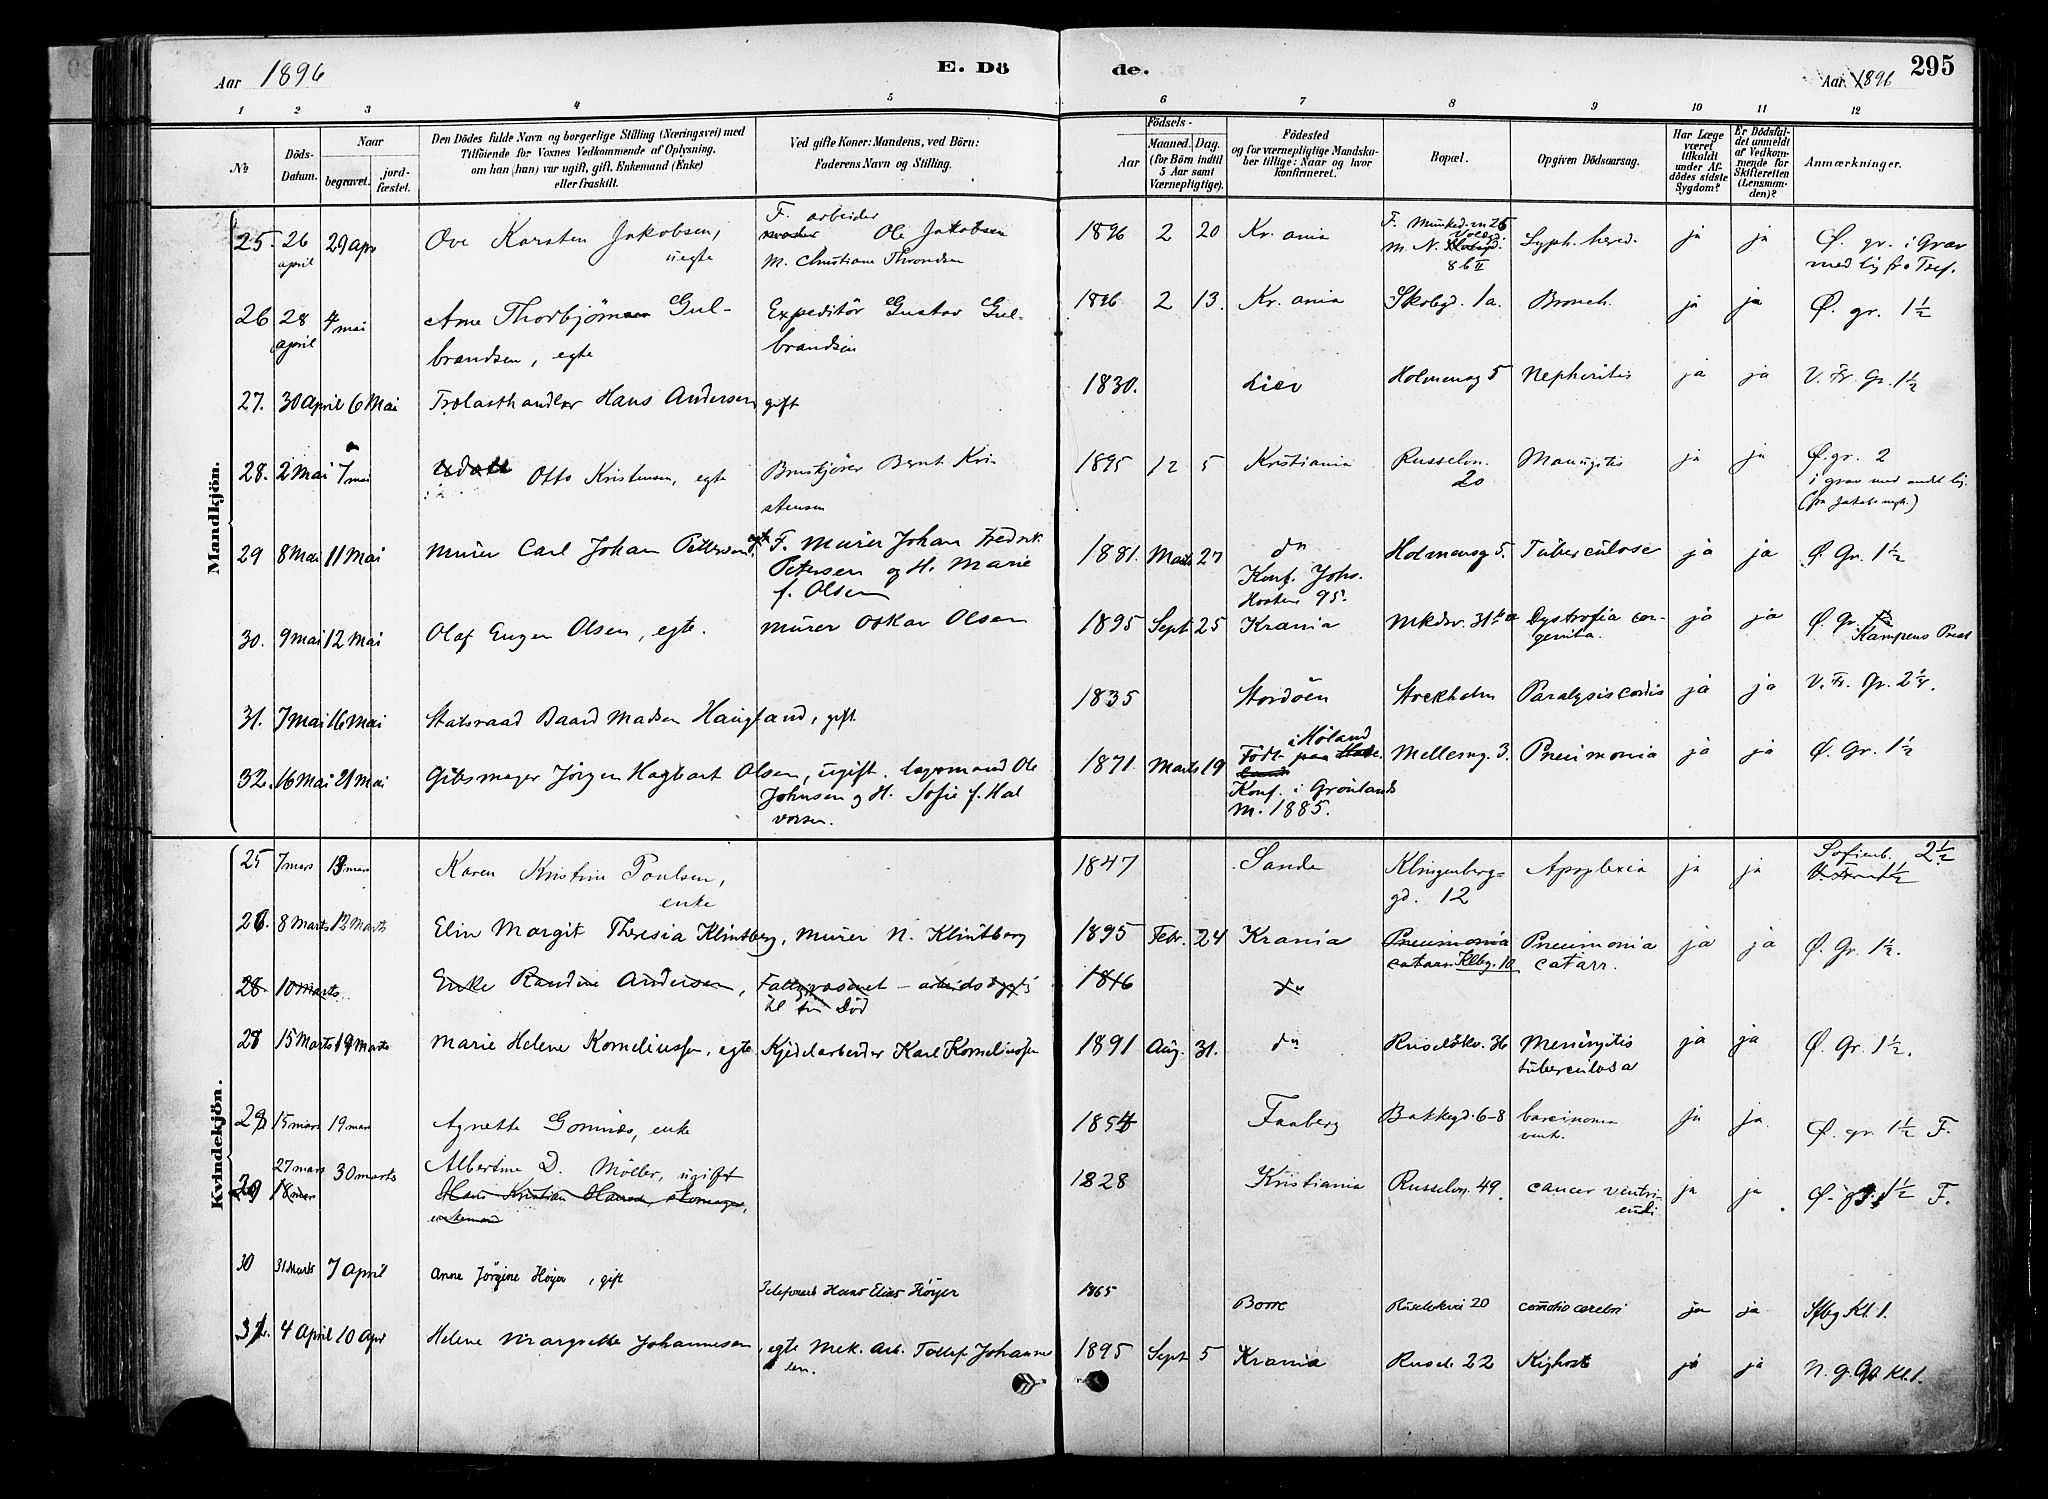 Aar 1896
E. Dö
de.
Aar 1896
295
1 2 3 4 5 6 7 8 9 10 11 12
No
Döds-
Datum.
Naar
begravet.
jord-
fæstet.
Den Dödes fulde Navn og borgerlige Stilling (Næringsvei) med
Tilföiende for Voxnes Vedkommende af Oplysning,
om han (hun) var ugift, gift, Enkemand (Enke)
eller fraskilt.
Ved gifte Koner: Mandens, ved Börn:
Faderens Navn og Stilling.
Födsels-
Aar
Maaned. Dag.
(for Börn indtil
5 Aar samt
Værnepligtige).
Födested
og for værnepligtige Mandska-
ber tillige: Naar og hvor
konfirmeret.
Bopæl.
Opgiven Dödsaarsag.
Har Læge
været
tilkaldt
under Af-
dödes sidste
Sygdom?
Er Dödsfal-
det anmeldt
af Vedkom-
mende for
Skifteretten
(Lensman-
den)?
Anmærkninger.
Mandkjön.
25. 26 april 29 apr Ove Karsten Jakobsen, uegte
F. arbeider Ole Jakobsen
M. Christiane Throndsen
1896 2 20 Kr.ania
F. Munked.v. 26
M. N. Vold
8 b II
Syph. hered. ja ja Ø. gr. i Grav
med lig fr. Tref.
26 28 april 4 mai Arne Thorbjørn Gul-
brandsen, egte
Expeditör Gustav Gul-
brandsen
1896 2 13. Kr.ania Skobgd. 1a. Bronch. ja ja Ø. gr. 1½
27. 30 April 6 Mai Trælasthandler Hans Andersen gift
1830. Lier Holmensg 5 Nephritis ja ja V. Fr. Gr. 1½
28. 2 Mai 7 mai Otto Kristensen, egte
Bruskjører Bernt Kri-
stensen
1895 12 5 Kristiania Russeløv. 20 ja ja Ø. gr. 2
i grav med andet lig.
(fra Jakobs mgh.)
29 8 Mai 11 Mai Murer Carl Johan Pettersen
F. Murer Johan Fredrik
Petersen og H. Marie
f. Olsen
1881. Marts 27 do
Konf. Johs.
Høsten 95.
Holmensg 5. Tuberculose ja ja Ø. Gr. 1½
30. 9 mai 12 Mai Olaf Eugen Olsen, egte. Murer Oskar Olsen
1895 Sept 25 Krania Mkdv. 31 Dystrofia con-
genita. ja ja Ø Gr.
Kampens Præst
31. 7 Mai 16 Mai Statsraad Baard Madsen Haugland, gift
1835 Stordöen Stockholm Paralysis cordis ja ja V. Fr. Gr. 2¼.
32. 16 Mai 21 Mai Gibsmager Jörgen Hagbart Olsen, ugift. Lagsmand Ole
Johnsen og H. Sofie f. Hal
vorsen.
1871. Marts 19
Født i Høland
Konf. i Grønlands
M. 1885.
Mellemg. 3. Pneumonia ja ja Ø. Gr. 1½
Kvindekjön.
25 7 mars 13 mars Karen Kristine Poulsen,
enke
1847 Sande Klingenberg-
gd. 12
Apoplexia ja ja Sofienb. 2½
26. 8 Marts 12 Marts Elin Margit Theresia Klintberg, Murer N. Klintberg
1895 Febr. 24 Krania Pneumonia
catarr. Klbg. 10
Pneumonia
catarr. ja ja Ø. Gr. 1½.
28 10 Marts Enke Randine Andersen, Fattigvæsenet – arbeidsdygtig
til sin Död
1816 do
27 15 Marts 19 Marts Marie Helene Korneliussen, egte Kjedelarbeider Karl Korneliussen
1891 Aug. 31. do Ruseløkv. 36 Meningitis
tuberculosa ja ja Ø. Gr. 1½.
28 15 mars 19 mars Agnette Gomnæs, enke
1854 Faaberg Bakkegd. 6-8 Carcinoma
ventr. ja ja. Ø. gr. 1½ F.
29 27 mars 30 marts Albertine D. Møller, ugift
18 mars Hans Kristian Hansen, skomager,
enkemand
1828 Kristiania Russeløv. 49. cancer ventri-
culi ja ja. Ø. gr. 1½ F.
30 31 Marts 7 April Anne Jørgine Høyer, gift
Telefonarb Hans Elias Höyer
1865 Borre Ruseløkvei 20 comotio cerebri ja ja Sfbg Kl. 1.
31. 4 April 10 Apr Helene Margrethe Johannesen, egte Mek. Arb. Tollef Johannes
sen.
1895 Sept 5 Krania Rusel. 22 Kighoste ja ja N. g. Gr Kl. 1.